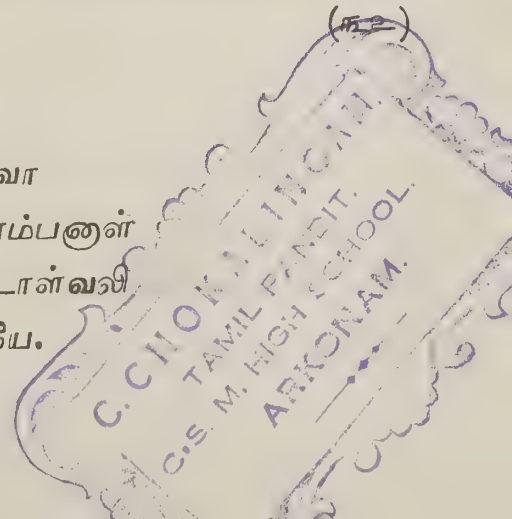 (௩௨)
வா
ம்பனாள்
டாள்வலி
யே.
C. CHOKALINGAM.
TAMIL PANDIT.
C.S. M. HIGH SCHOOL.
ARKONAM.